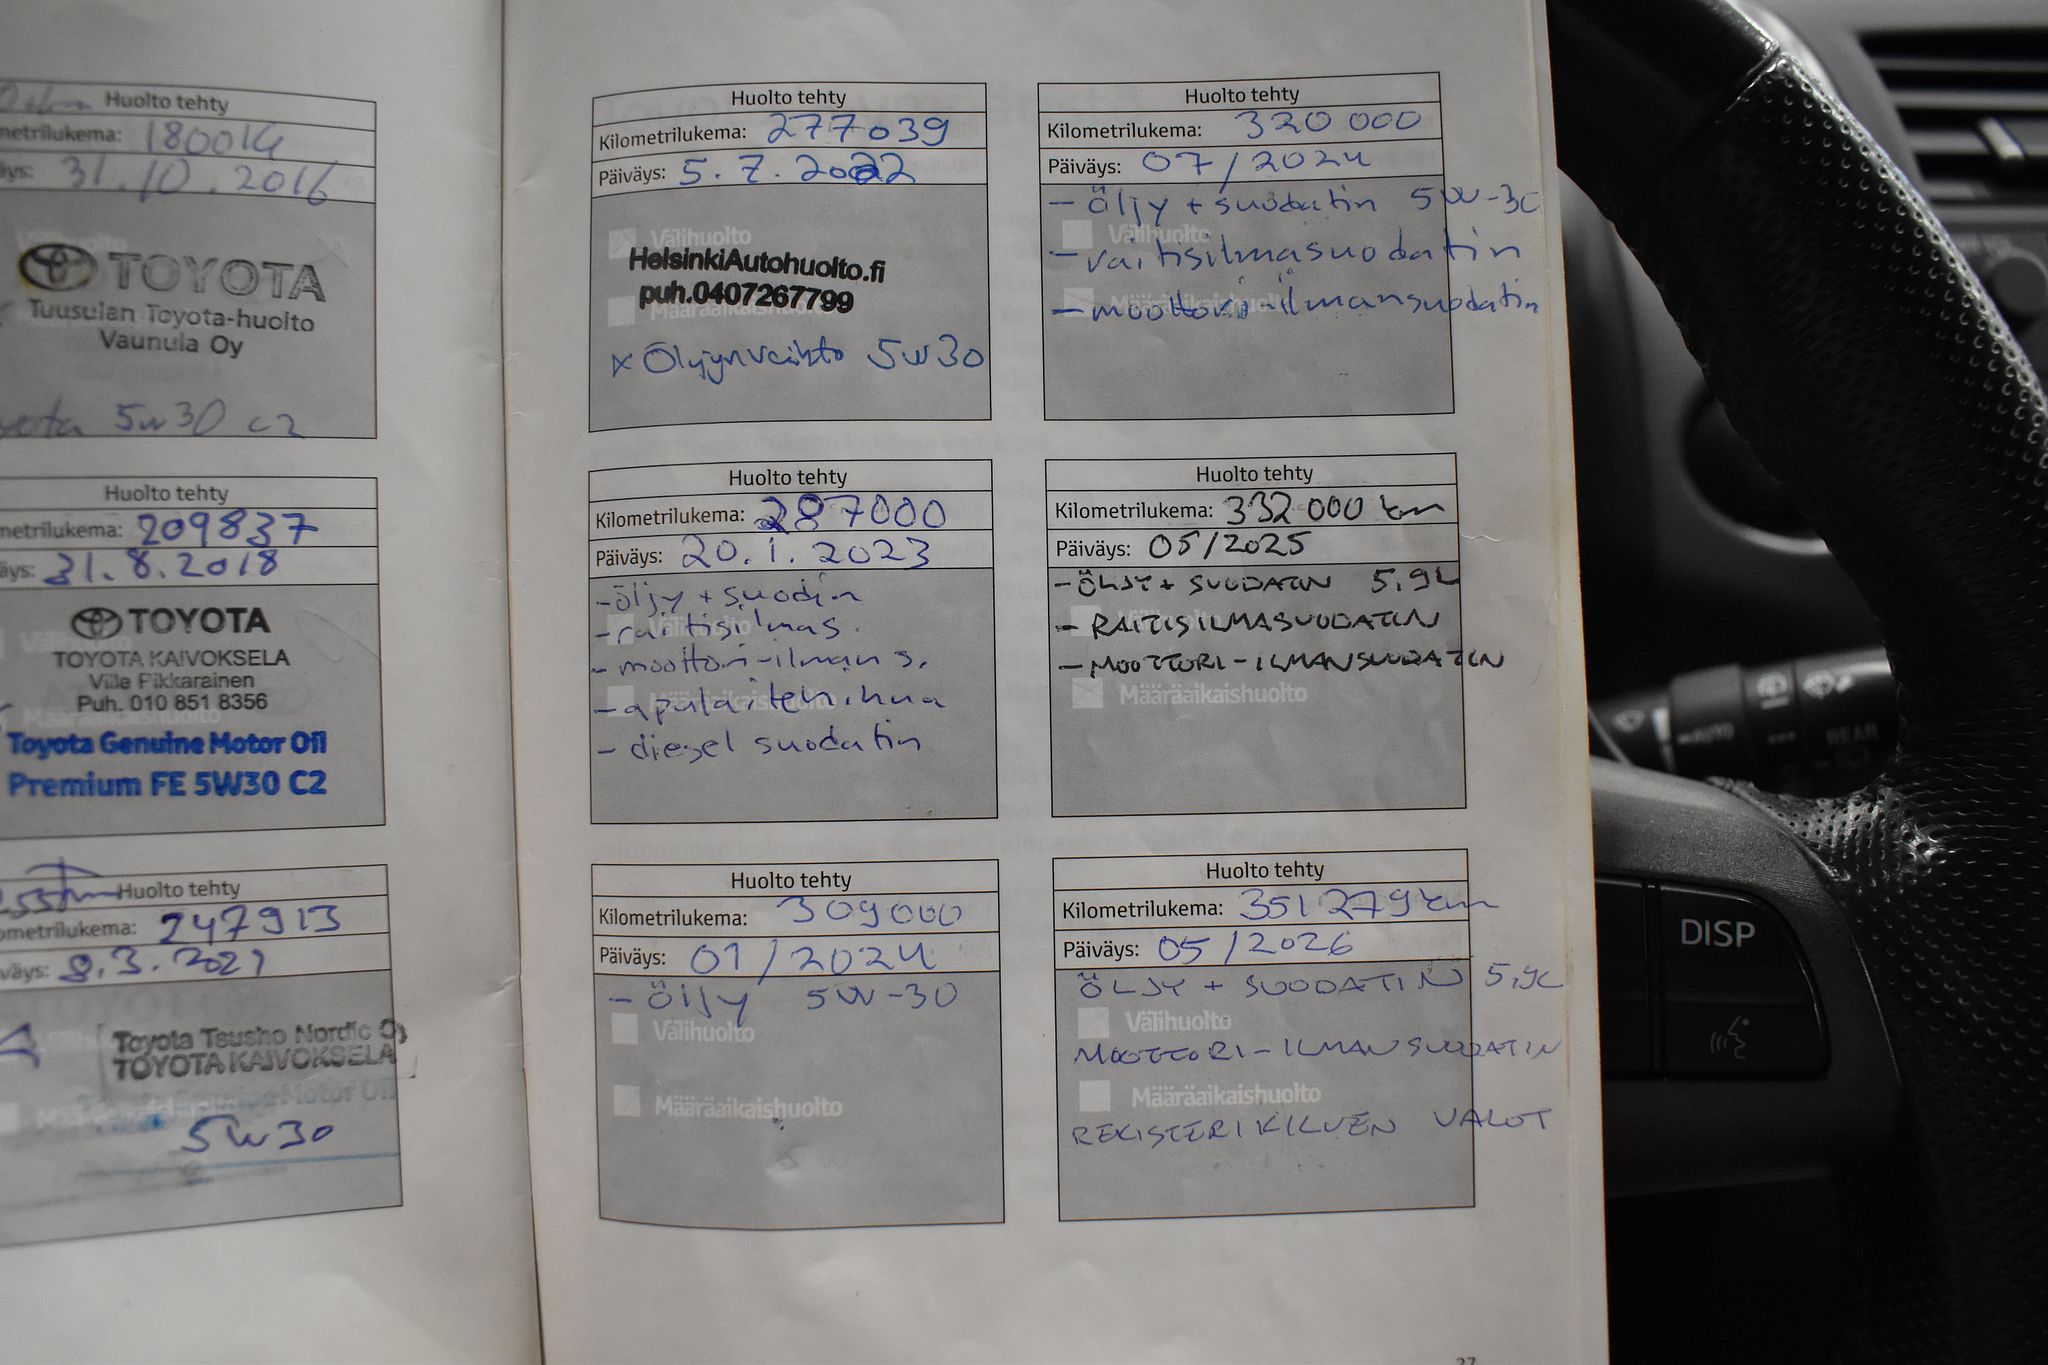 Huolto tehty
180014
31.10.2016
TOYOTA
Tuusulan Toyota-huolto
Vaunula Oy
5w30 C2
Huolto tehty
209837
31.8.2018
TOYOTA
TOYOTA KAIVOKSELA
Ville Pikkarainen
Puh. 010 851 8356
Toyota Genuine Motor Oil
Premium FE 5W30 C2
Huolto tehty
247913
8.3.2021
Toyota Tsusho Nordic Oy
TOYOTA KAIVOKSELA
5W30
Huolto tehty
Kilometrilukema: 277039
Päiväys: 5.7.2022
Välihuolto
HelsinkiAutohuolto.fi
puh.0407267799
Määräaikaishuolto
x Öljynvaihto 5W30
Huolto tehty
Kilometrilukema: 287000
Päiväys: 20.1.2023
- öljy + suodin
- raitisilmas.
Välihuolto
- moottori-ilmans.
Määräaikaishuolto
- apulaitehihna
- diesel suodatin
Huolto tehty
Kilometrilukema: 309000
Päiväys: 01/2024
- Öljy 5W-30
Välihuolto
Määräaikaishuolto
Huolto tehty
Kilometrilukema: 320 000
Päiväys: 07/2024
- Öljy + suodatin 5W-30
Välihuolto
- raitisilmasuodatin
Määräaikaishuolto
- moottori-ilmansuodatin
Huolto tehty
Kilometrilukema: 332 000 km
Päiväys: 05/2025
- ÖLJY + SUODATIN 5,9L
Välihuolto
- RAITISILMASUODATIN
- MOOTTORI-ILMANSUODATIN
Määräaikaishuolto
Huolto tehty
Kilometrilukema: 351 279 km
Päiväys: 05/2026
ÖLJY + SUODATIN 5,9L
Välihuolto
MOOTTORI-ILMANSUODATIN
Määräaikaishuolto
REKISTERIKILVEN VALOT
AUTO
REAR
DISP